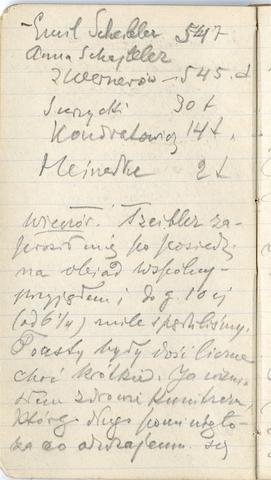 Emil Scheibler 547
Anna Scheibler
z Wernerów — 545. d
Surzycki 30 t
Kondratowicz 14 t.
Meinedke 2 t
Wieczór. Szeibler za-
prosił mię po posiedz.
na obiad wspólny –
przyjąłem i do g. 10 ej
(od 6¼) mile spędziliśmy.
Toasty były dość liczne
choć krótkie. Ja
zdrowie Kunitzera,
którego długo
za co